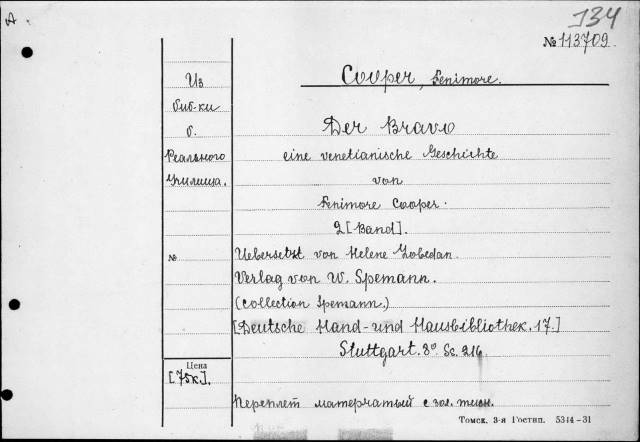 A
134
№113709
Cooper, Fenimore.
Из
биб-ки
б.
Реального
Училища.
Der Bravo
eine venetianische Geschichte
von
Fenimore Cooper.
2[Band].
№
Uebersetzt von Helene Lobedan.
Verlag von W. Spemann.
(Collection Spemann.)
[Deutsche Hand- und Hausbibliothek. 17.]
Stuttgart. 8° Sc. 216
Цена
[75к].
Переплет матерчатый с зол. тисн.
Томск. 3-я Гостип. 5344-31